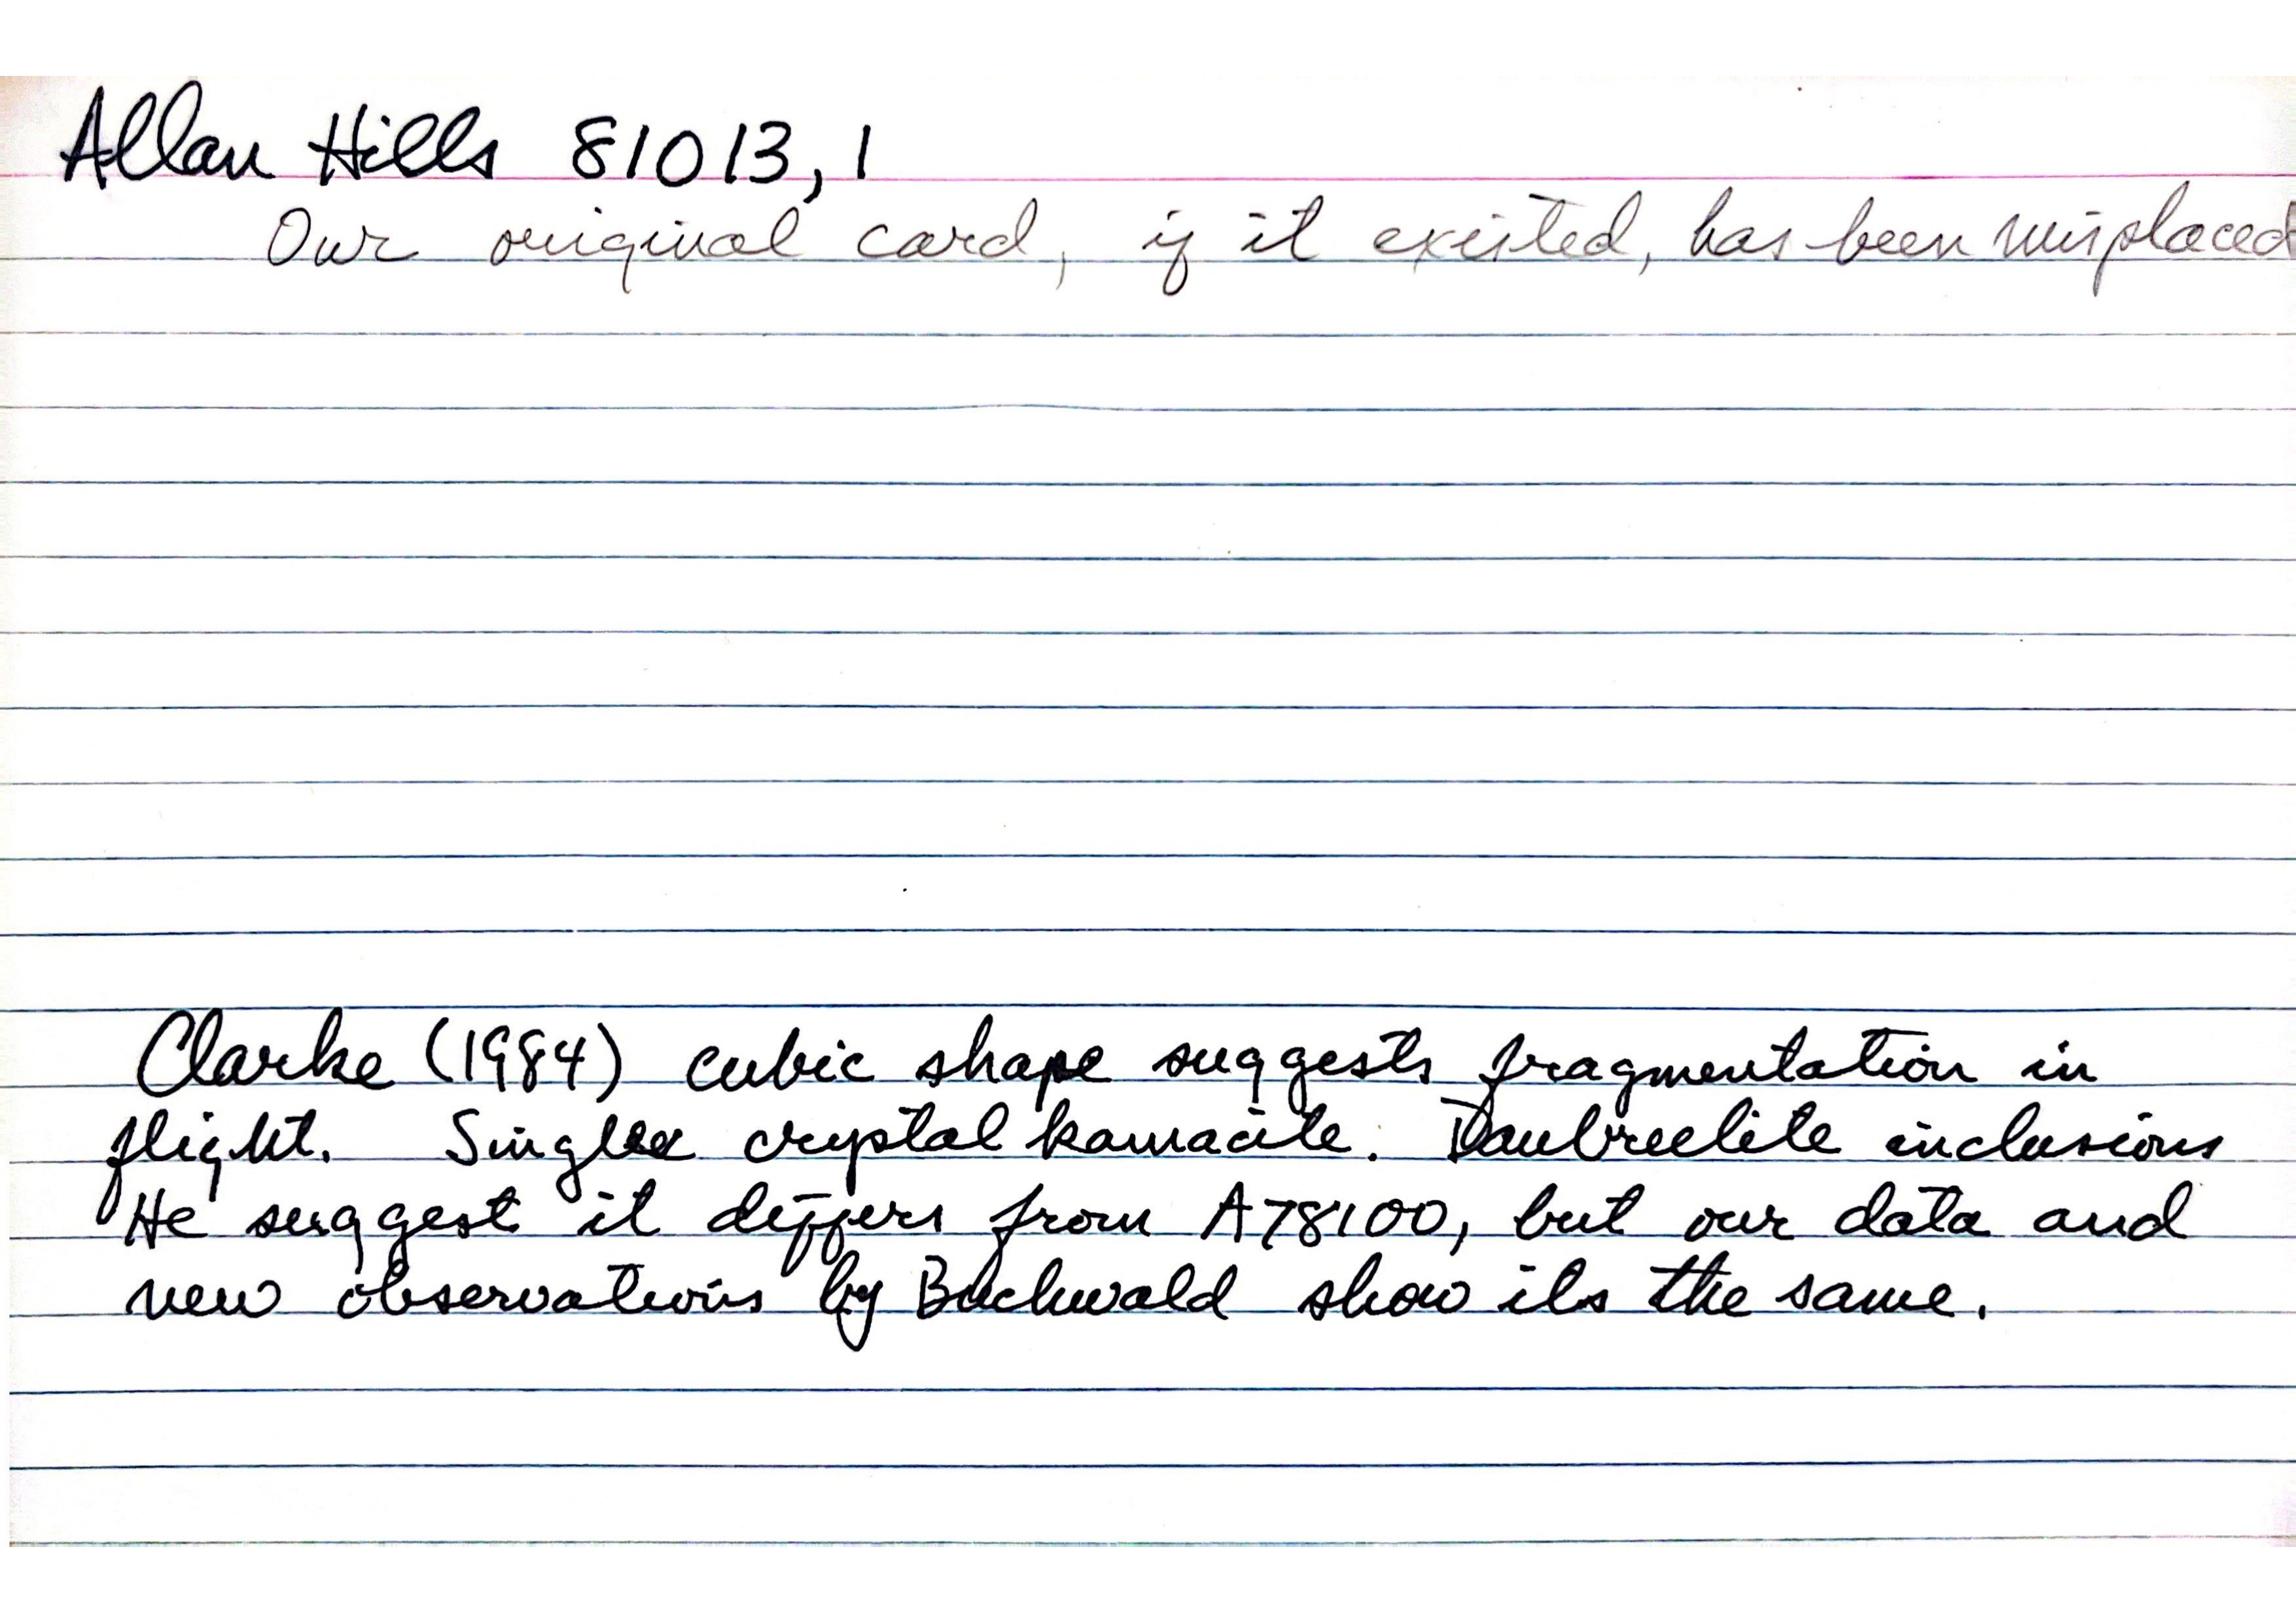 Allan Hills 81013,1
Our original card, if it existed, has been misplaced
Clarke (1984) cubic shape suggests fragmentation in
flight. Single crystal kamacite. Daubreelite inclusions
He suggest it differs from A78100, but our data and
new observations by Buchwald show its the same.